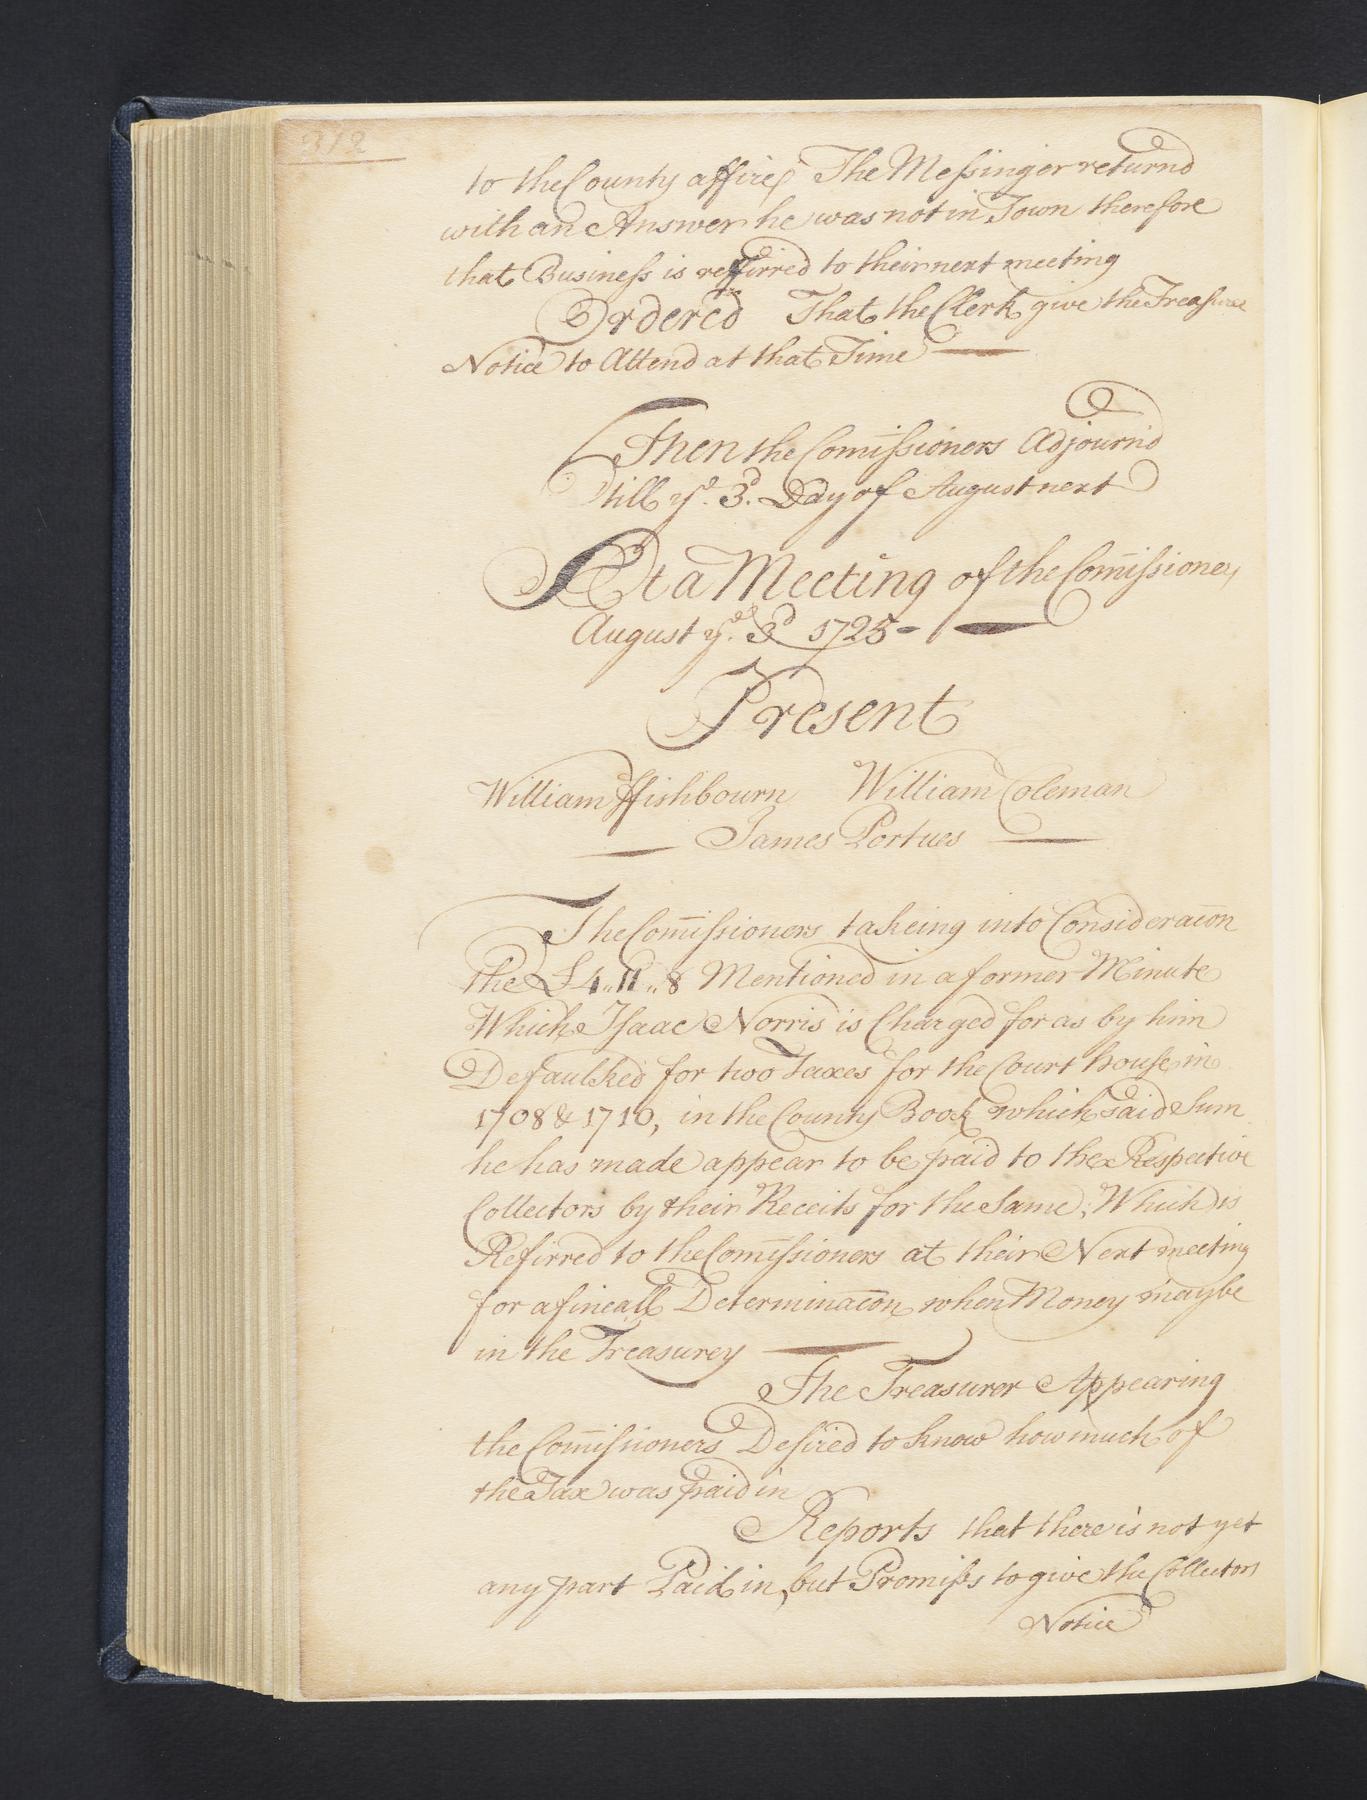 312
to the County affires The Messinger returnd
with an Answer he was not in Town therefore
that Business is reffirred to their next meeting
Ordered That the Clerk give the Treasurer
Notice to Attend at that Time
Then the Comissioners Adjournd
till ye. 3d. Day of August next
At a Meeting of the Comissioners
August ye. 3d 1725
Present
William ffishbourn William Coleman
James Portues
The Comissioners takeing into Consideracon
the £4..11..8 Mentioned in a former Minute
Which Isaac Norris is Charged for as by him
Defaulked for two Taxes for the Court house in
1708 & 1710, in the County Book which said Sum
he has made appear to be paid to the Respective
Collectors by their Receits for the Same, Which is
Refirred to the Comissioners at their Next meeting
for a fineall Determinacon when Money may be
in the Treasurey
The Treasurer Appearing
the Comissioners Desired to know how much of
the Tax was paid in
Reports that there is not yet
any part Paid in, but Promises to give the Collectors
Notice